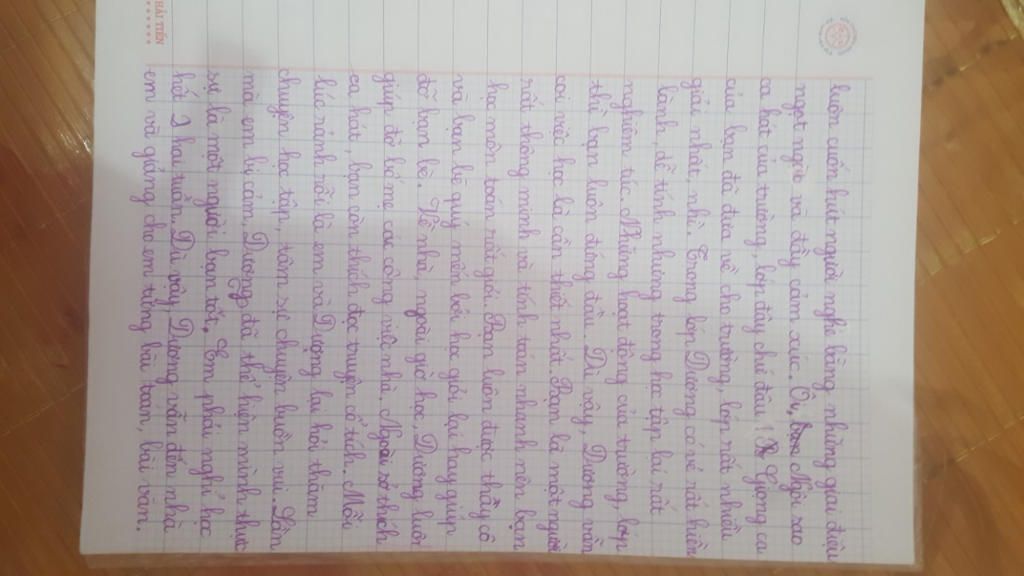 HẢI TIẾN
luôn cuốn hút người nghe bằng những giai điệu
ngọt ngào và đầy cảm xúc. Ôi, Ngôi sao
ca hát của trường, lớp đấy chứ đâu! Giọng ca
của bạn đã đưa về cho trường, lớp rất nhiều
giải nhất nhì. Trong lớp Dương có vẻ rất hiền
lành, dễ tính nhưng trong học tập lại rất
nghiêm túc. Những hoạt động của trường, lớp
thì bạn luôn đứng đầu. Dù vậy, Dương vẫn
coi việc học là cần thiết nhất. Bạn là một người
rất thông minh và tính toán nhanh nên bạn
học môn toán rất giỏi. Bạn luôn được thầy cô
và bạn bè quý mến bởi học giỏi lại hay giúp
đỡ bạn bè. Về nhà, ngoài giờ học, Dương luôn
giúp đỡ bố mẹ các công việc nhà. Ngoài sở thích
ca hát, bạn còn thích đọc truyện cổ tích. Mỗi
lúc rảnh rỗi là em và Dương lại hỏi thăm
chuyện học tập, tâm sự chuyện buồn vui. Lần
mà em bị cảm, Dương đã thể hiện mình thực
sự là một người bạn tốt. Em phải nghỉ học
hết 2 hai tuần. Dù vậy, Dương vẫn đến nhà
em và giảng cho em từng bài toán, bài văn.